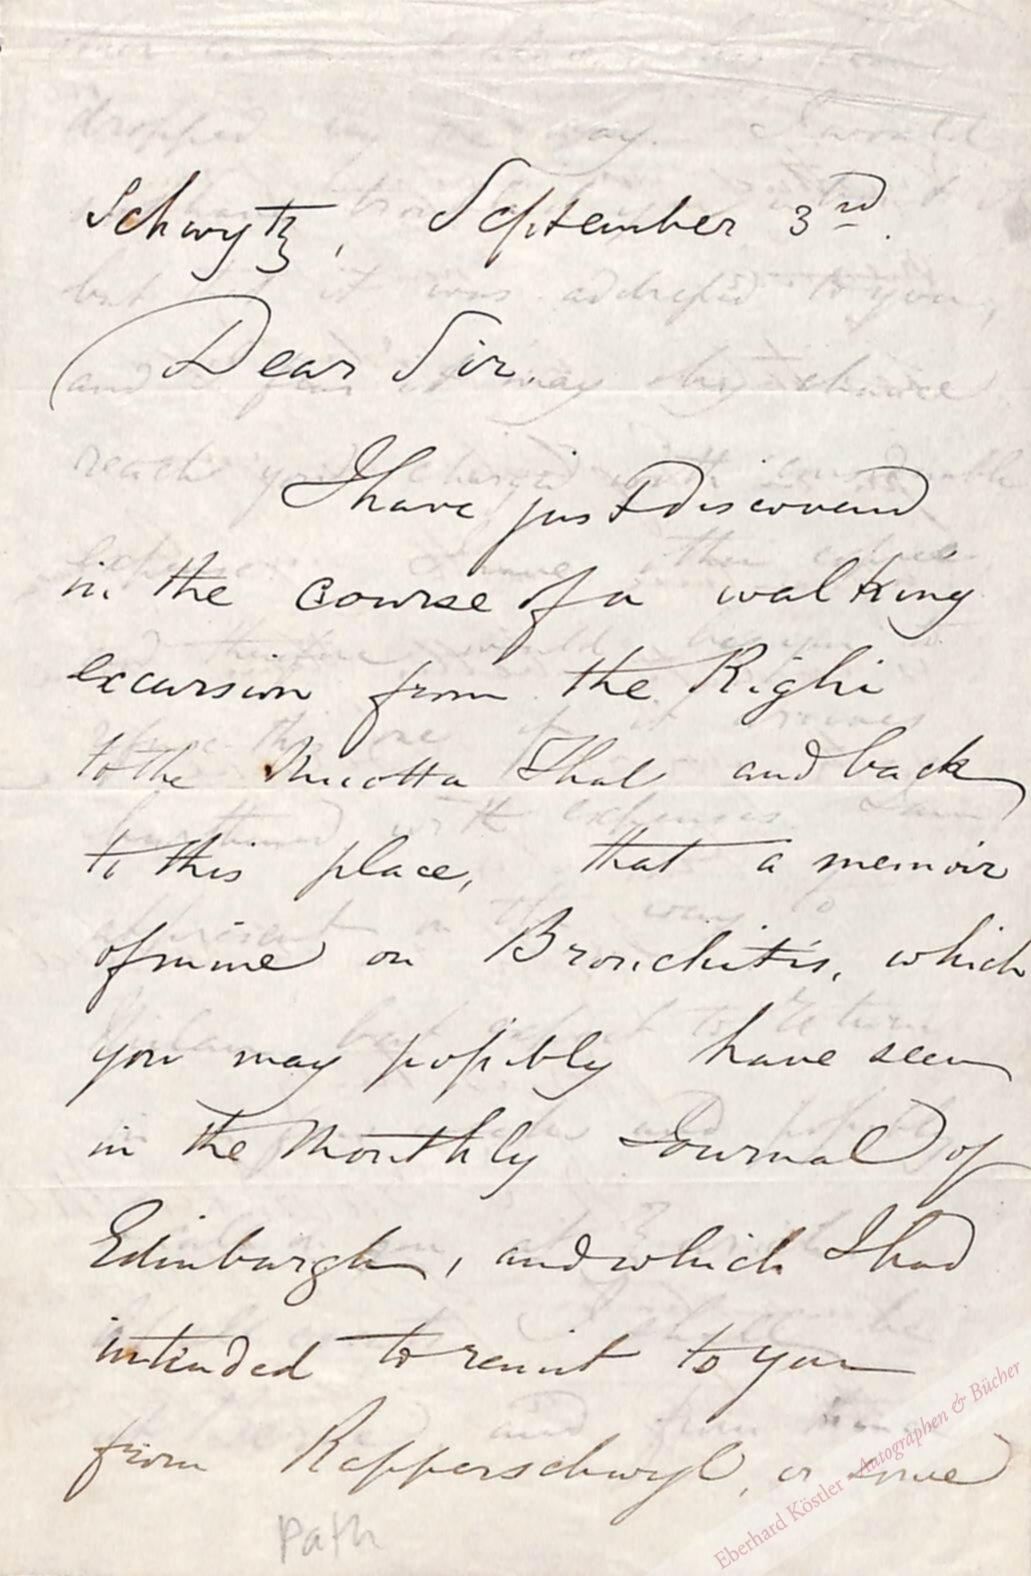 Schwytz, September 3rd.
Dear Sir.
I have just discovered
in the course of a walking
excursion from the Righi
to the Muotta Thal and back
to this place, that a memoir
of mine on Bronchitis, which
you may possibly have seen
in the Monthly Journal of
Edinburgh, and which I had
intended to remit to you
from Rapperschwyl, or some
path
Eberhard Köstler - Autographen & Bücher